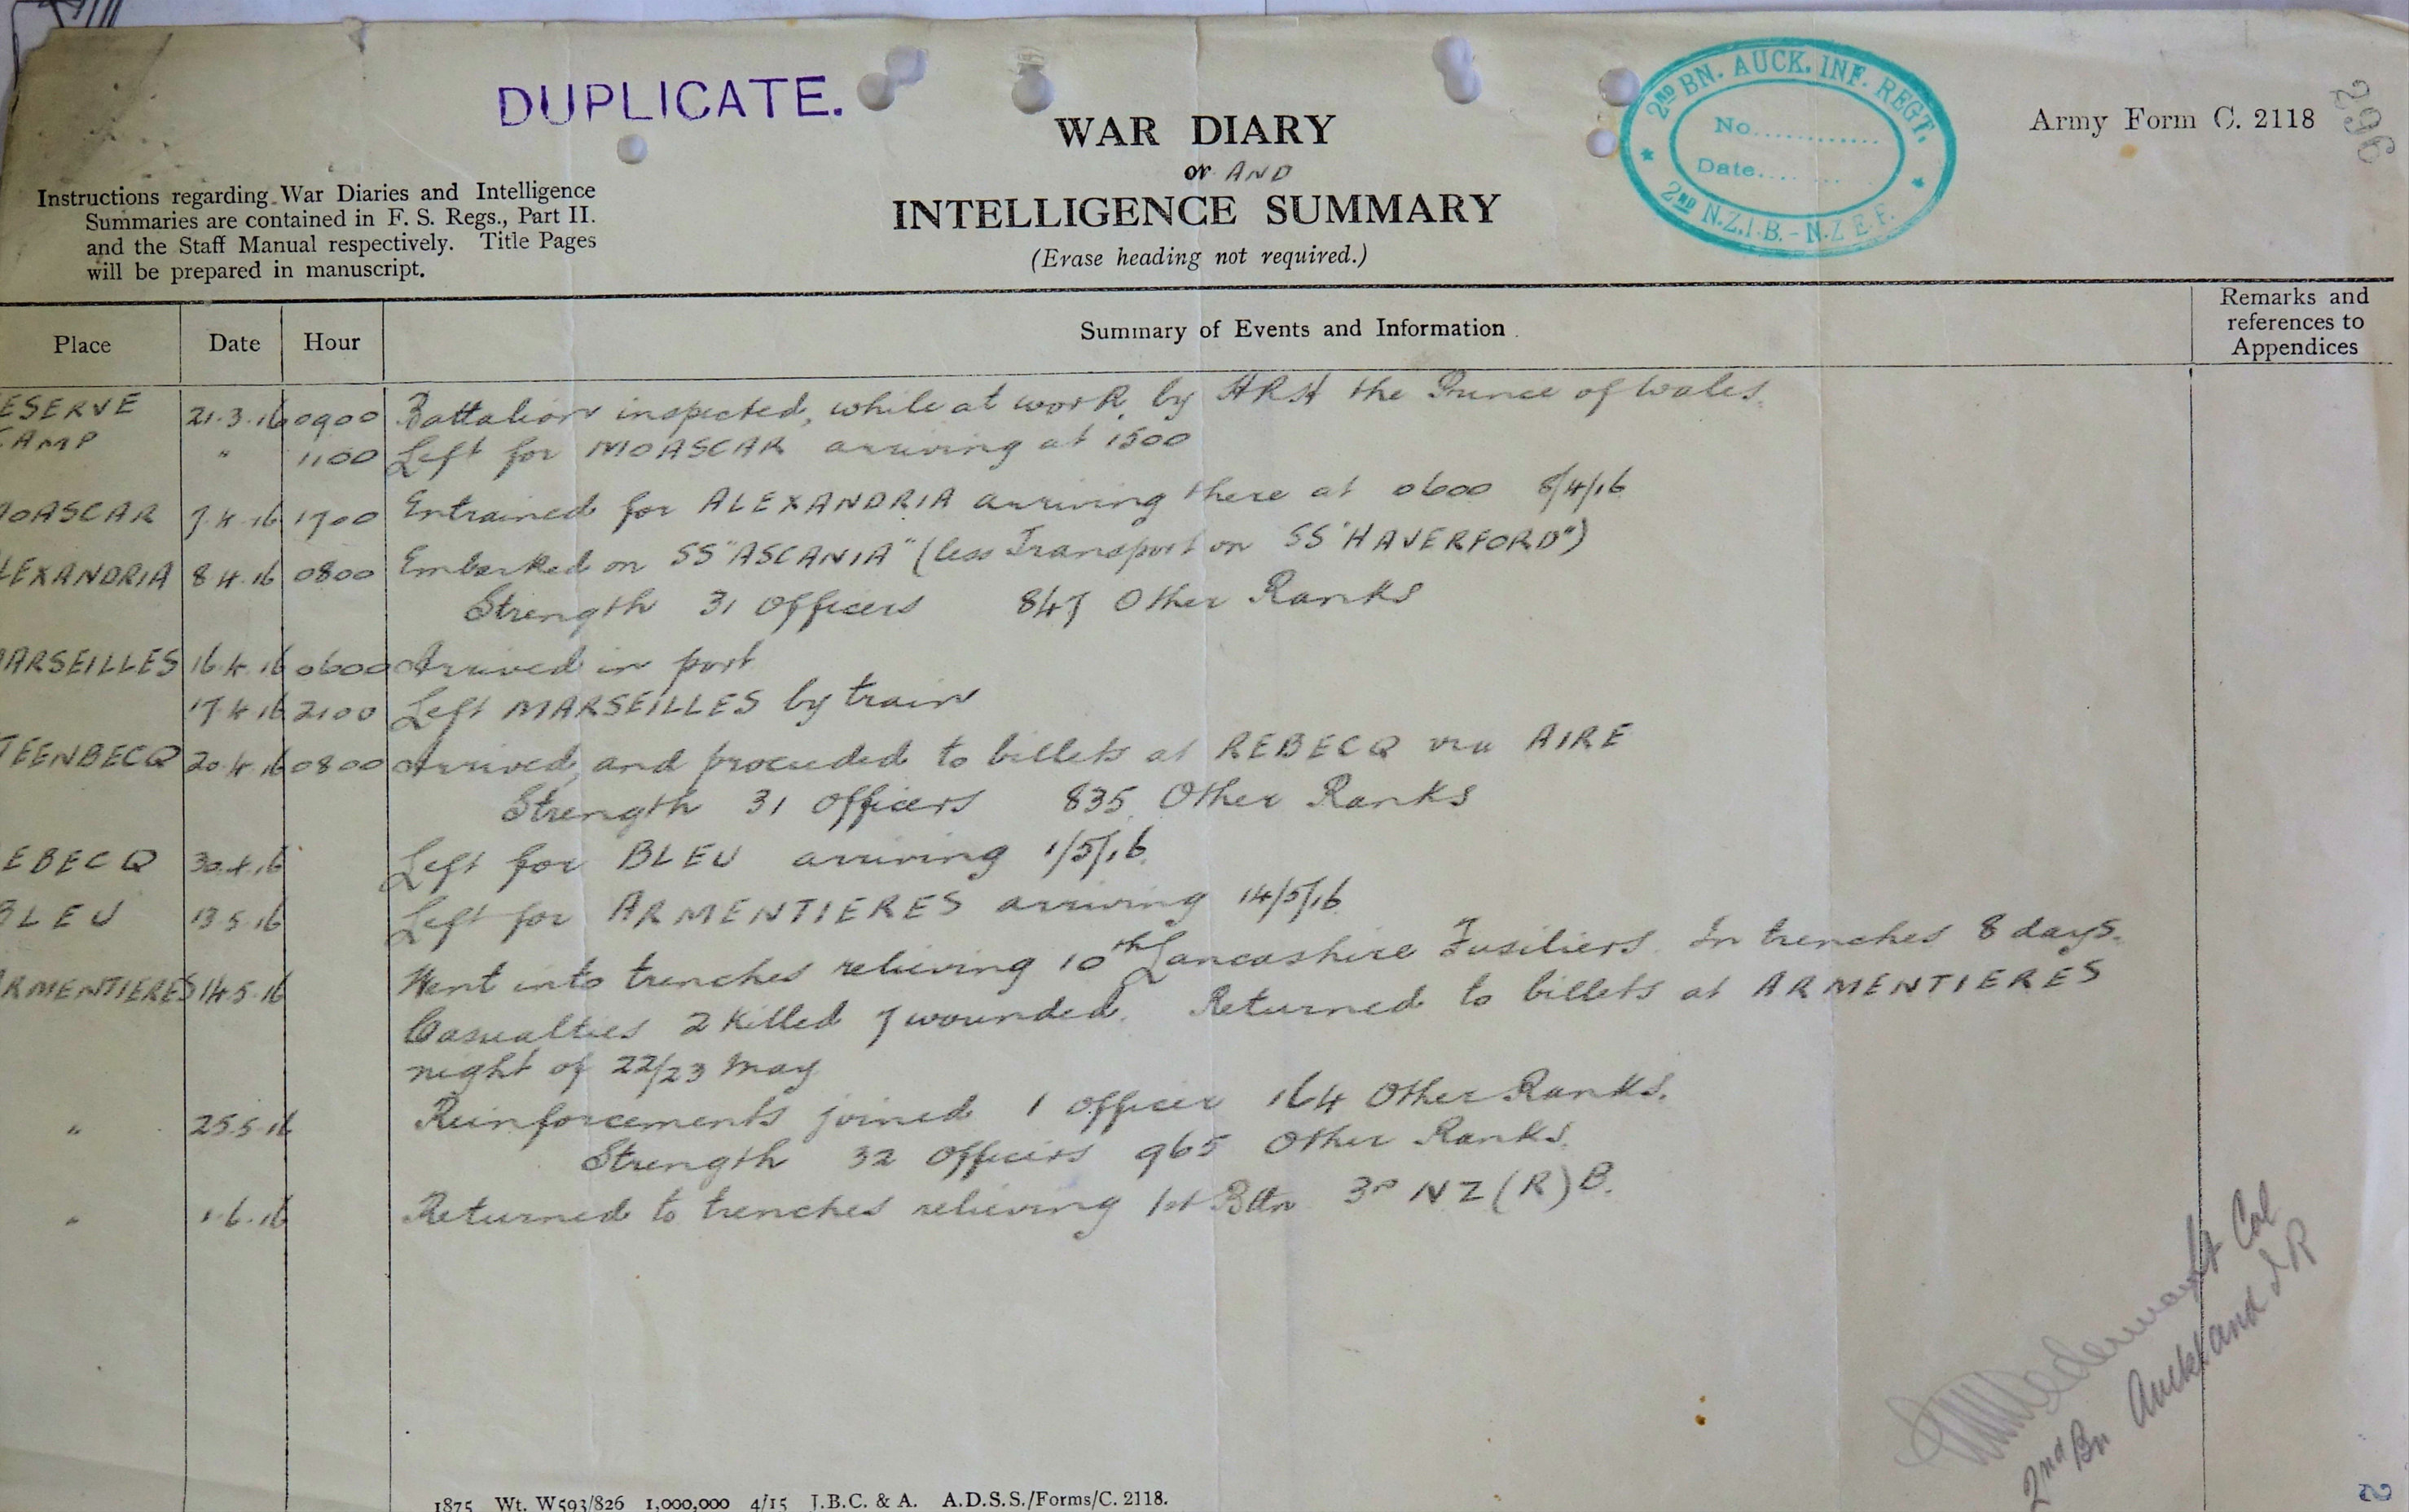 DUPLICATE.
2ND BN. AUCK. INF. REGT.
No............
Date............
2ND N.Z.I.B. - N.Z.E.F.
Army Form C. 2118
296
WAR DIARY
or AND
INTELLIGENCE SUMMARY
(Erase heading not required.)
Instructions regarding War Diaries and Intelligence
Summaries are contained in F. S. Regs., Part II.
and the Staff Manual respectively. Title Pages
will be prepared in manuscript.
Place Date Hour Summary of Events and Information Remarks and references to Appendices
ESERVE 21.3.16 0900 Battalion inspected, while at work, by HRH the Prince of Wales.
CAMP " 1100 Left for MOASCAR arriving at 1500
MOASCAR 7.4.16 1700 Entrained for ALEXANDRIA arriving there at 0600 8/4/16
LEXANDRIA 8.4.16 0800 Embarked on SS "ASCANIA" (less Transport on SS "HAVERFORD")
Strength 31 Officers 847 Other Ranks
MARSEILLES 16.4.16 0600 Arrived in port
17.4.16 2100 Left MARSEILLES by train
TEENBECQ 20.4.16 0800 Arrived, and proceeded to billets at REBECQ via AIRE
Strength 31 Officers 835 Other Ranks
EBECQ 30.4.16 Left for BLEU arriving 1/5/16.
BLEU 13.5.16 Left for ARMENTIERES arriving 14/5/16
RMENTIERES 14.5.16 Went into trenches relieving 10th Lancashire Fusiliers. In trenches 8 days.
Casualties 2 killed 7 wounded. Returned to billets at ARMENTIERES
night of 22/23 May
" 25.5.16 Reinforcements joined 1 officer 164 Other Ranks.
Strength 32 Officers 965 Other Ranks.
" 1.6.16 Returned to trenches relieving 1st Bttn 3RD NZ (R) B.
Lt Col
2nd Bn Auckland I R
1875 Wt. W593/826 1,000,000 4/15 J.B.C. & A. A.D.S.S./Forms/C. 2118.
2